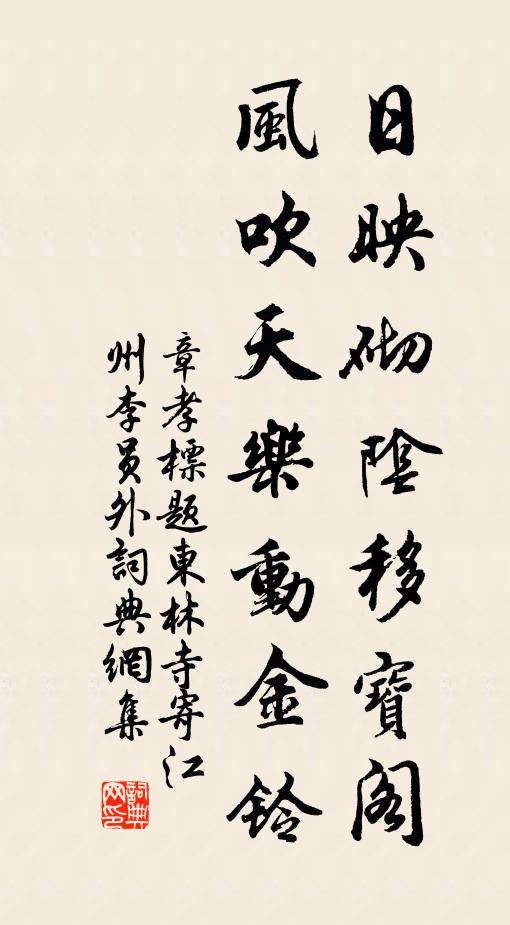 日映砌陰移寶閣
風吹天樂動金鈴
章孝標題東林寺寄江
州李員外詞典網集
詞典
网印